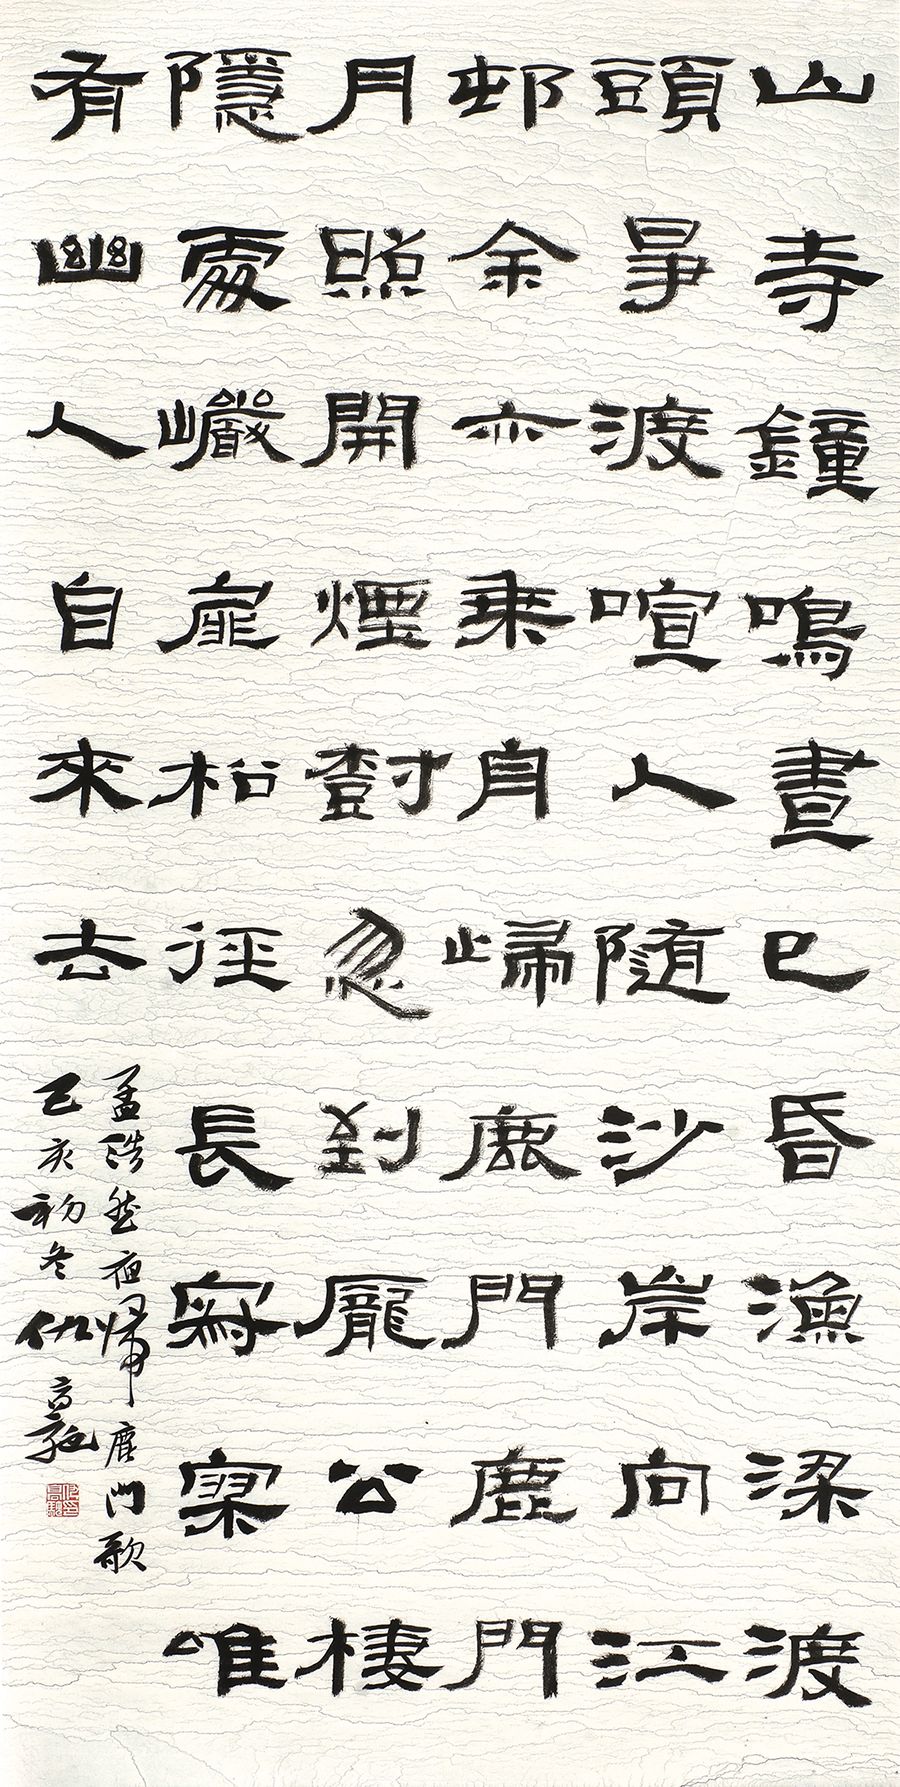 山寺鐘鳴晝已昏漁梁渡
頭爭渡喧人隨沙岸向江
邨余亦乘舟歸鹿門鹿門
月照開煙樹忽到龐公棲
隱處巖扉松徑長寂寥唯
有幽人自來去
孟浩然夜歸鹿門歌
己亥初冬仇高馳